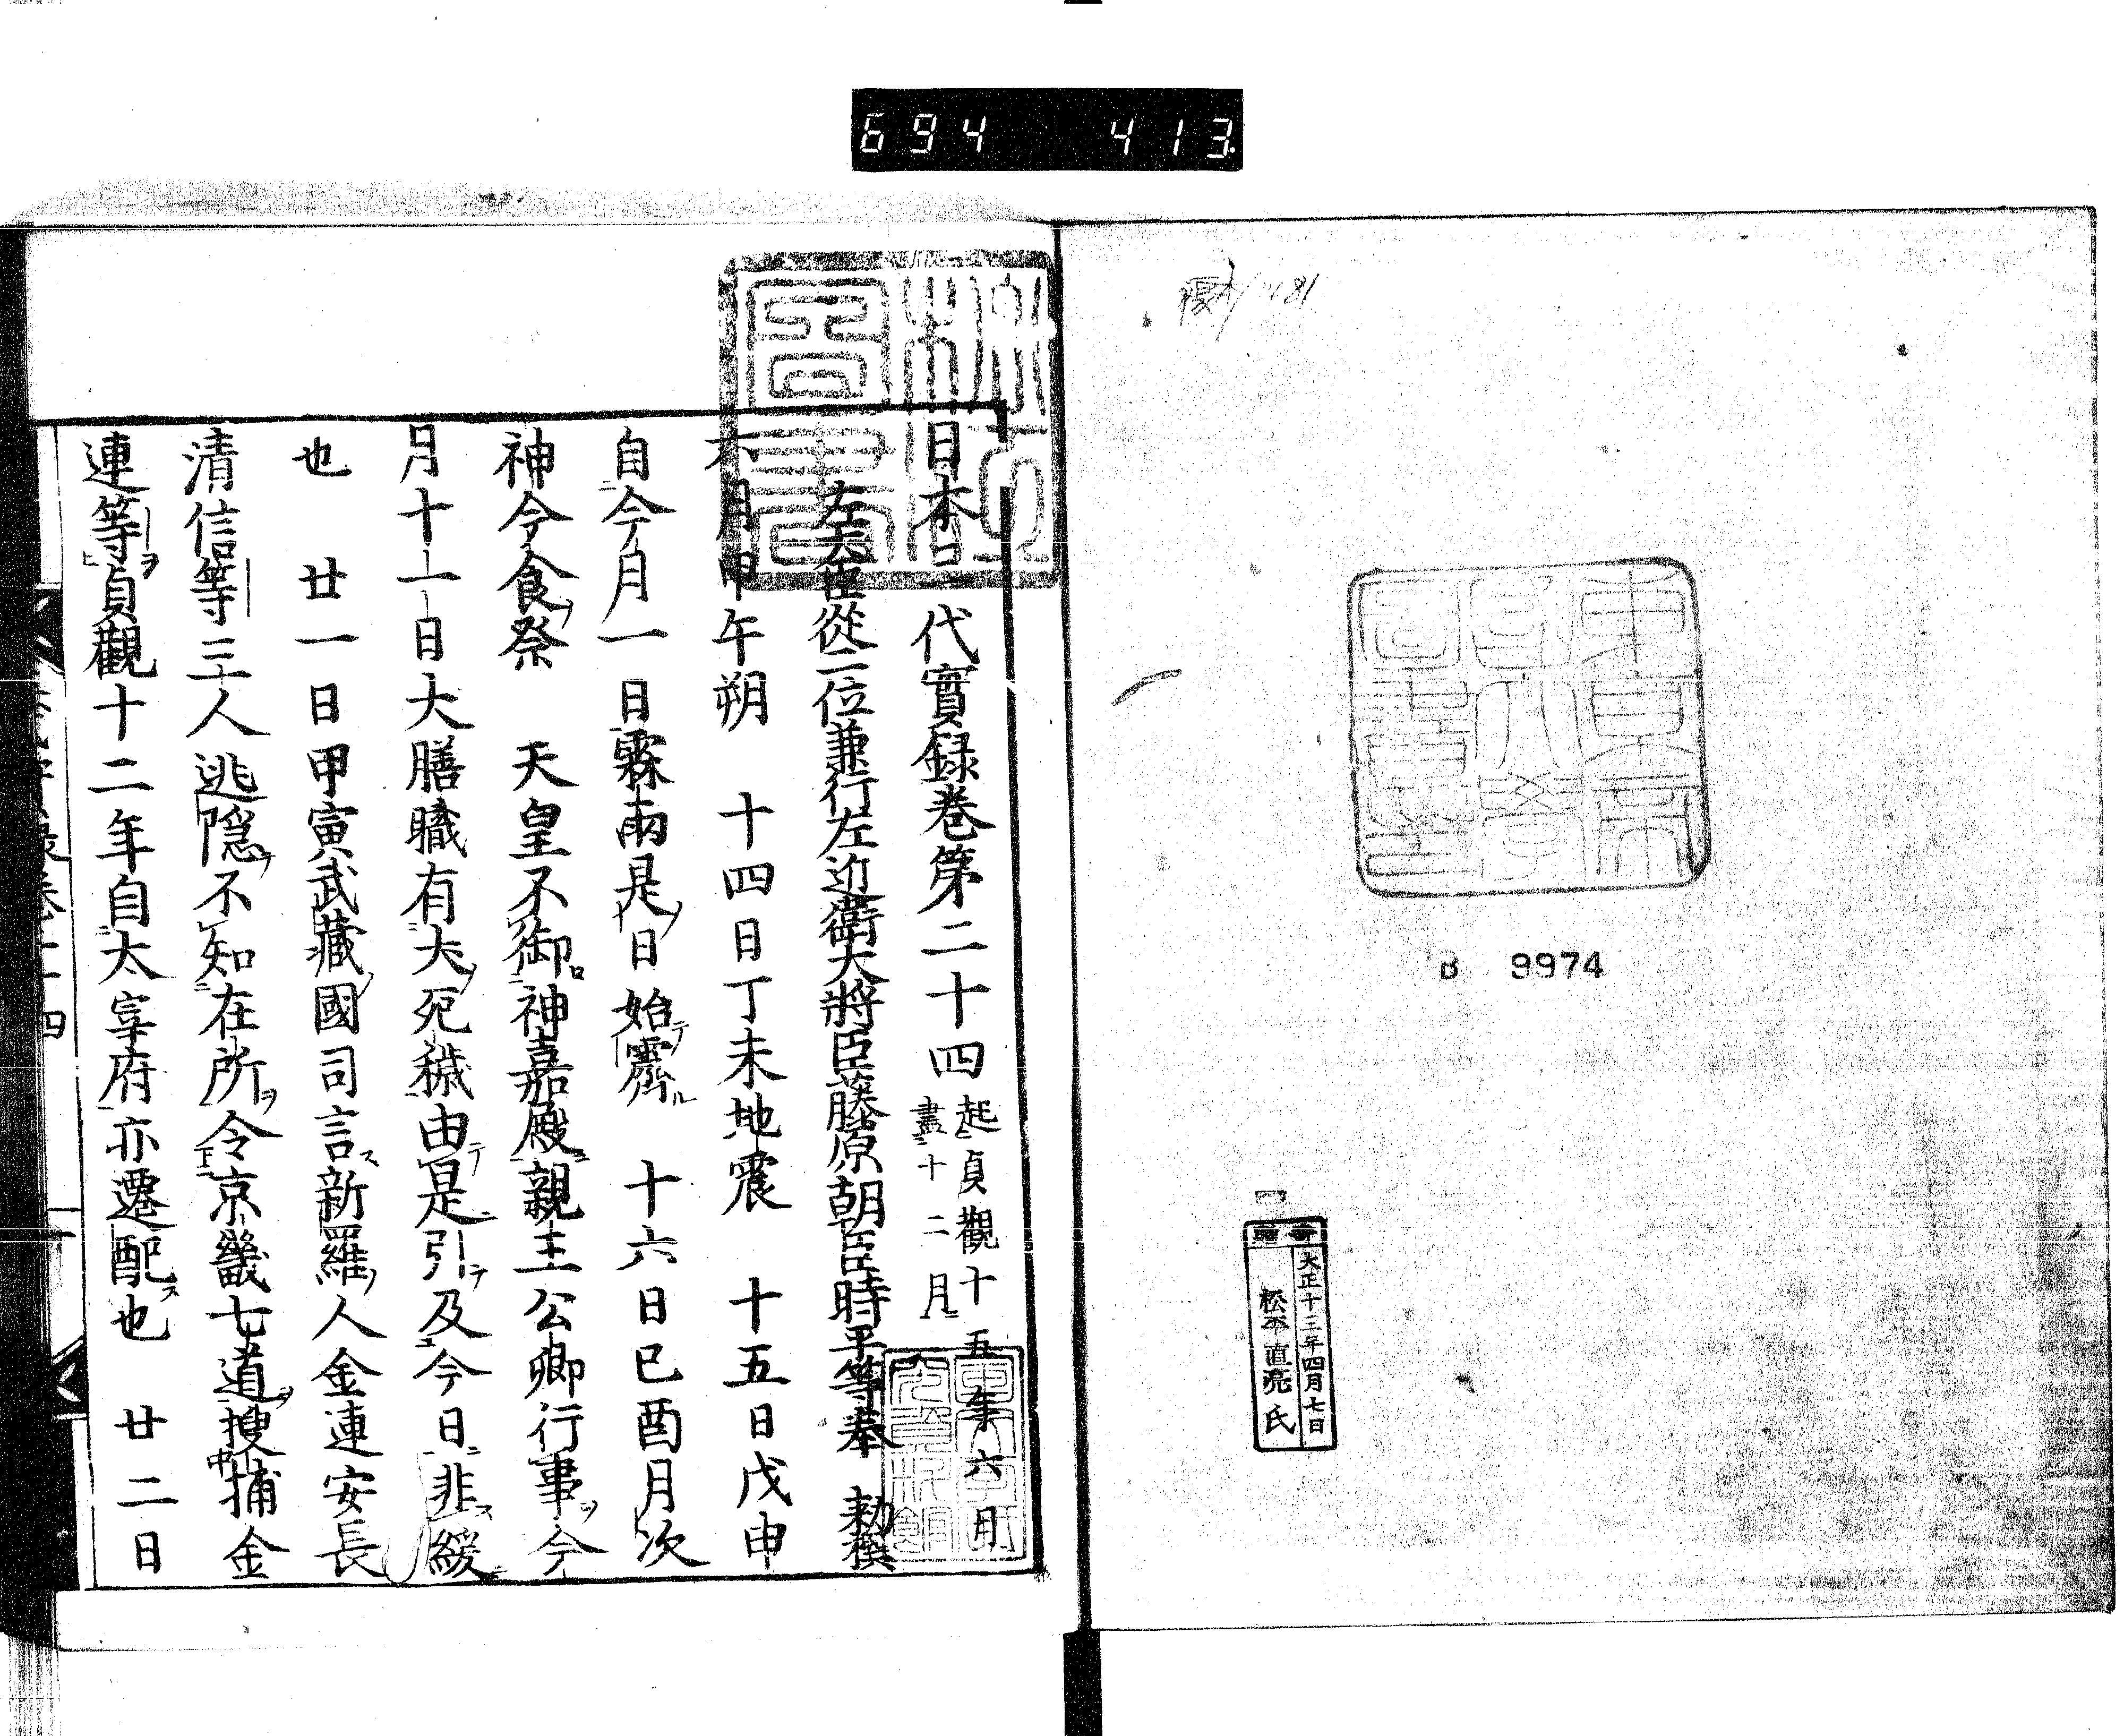 694 413
B 9974
寄贈
大正十三年四月七日
松平直亮氏
日本三代實録卷第二十四 起貞觀十五年六月
盡十二月
左大臣從二位兼行左近衛大將臣藤原朝臣時平等奉 勅撰
六月甲午朔 十四日丁未地震 十五日戊申
自今月一日霖雨是日始霽 十六日己酉月次
神今食祭 天皇不御神嘉殿親王公卿行事今
月十一日大膳職有犬死穢由是引及今日韭緩
也 廿一日甲寅武藏國司言新羅人金連安長
清信等三人逃隠不知在所令京畿七道搜捕金
連等貞觀十二年自太宰府亦遷配也 廿二日